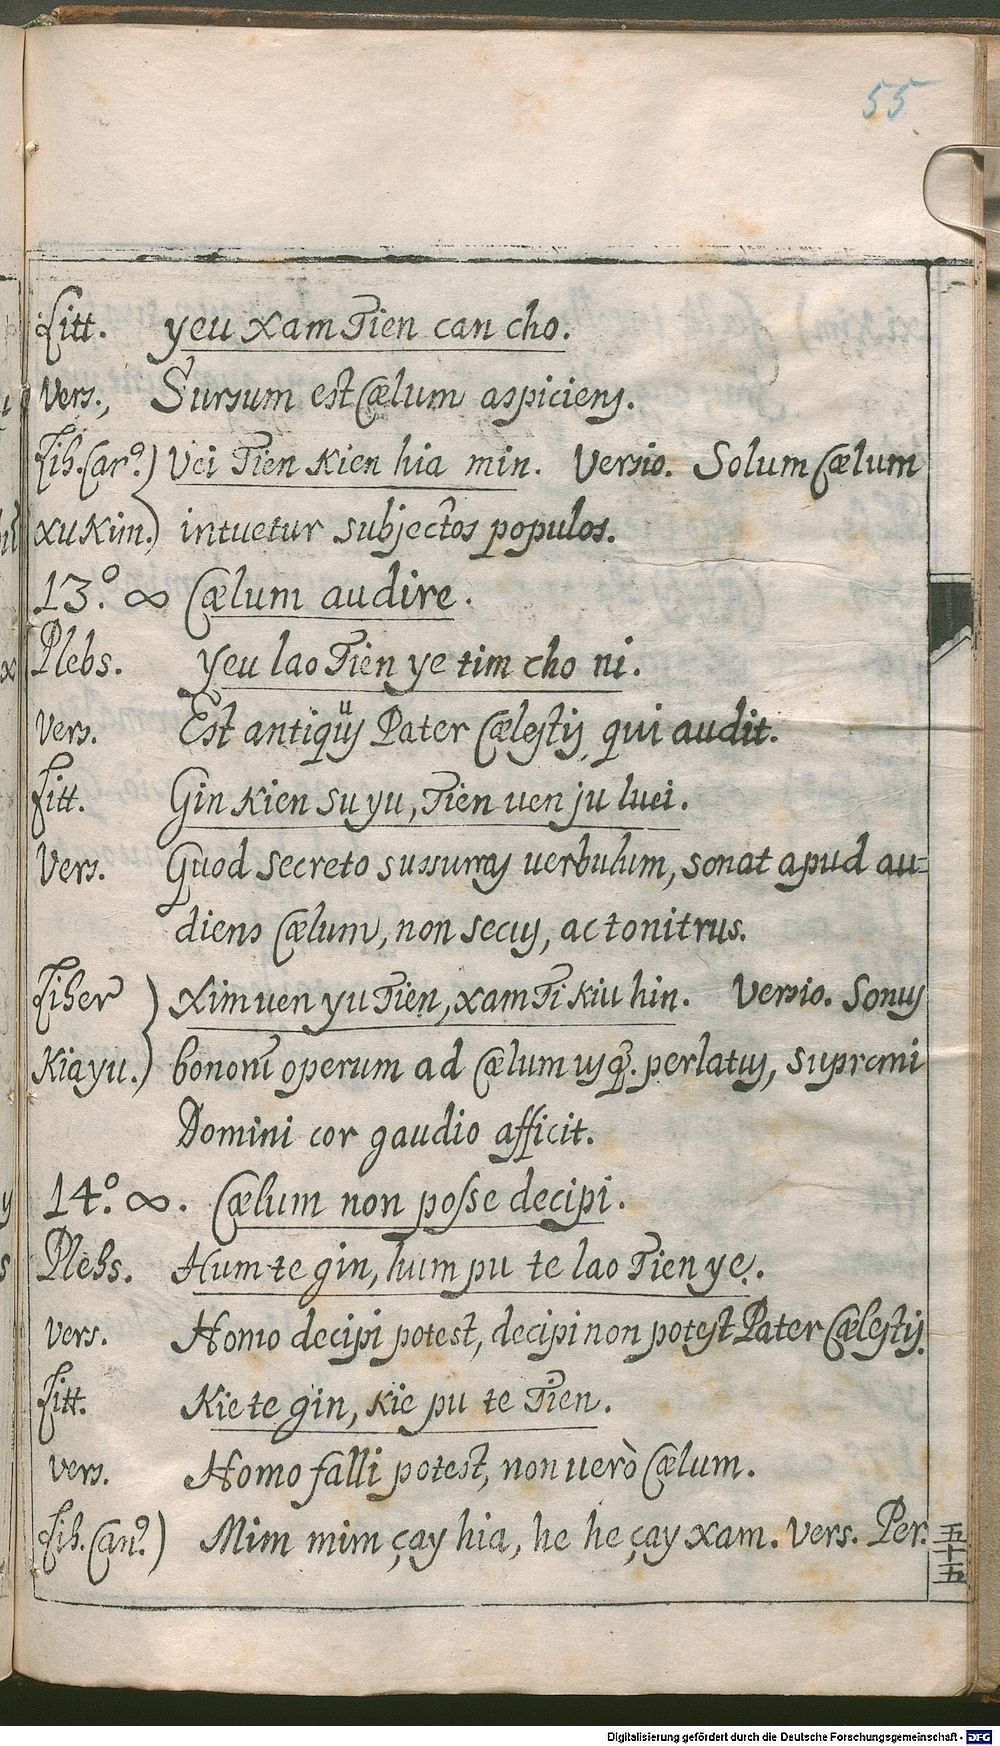 55
Litt. yeu xam Tien can cho.
Vers., Sursum est Cælum aspiciens.
Lib. Car.º) Vei Tien Kien hia min. Versio. Solum Cælum
xu Kim.) intuetur subjectos populos.
13.º ∞ Cælum audire.
Plebs. Yeu lao Tien ye tim cho ni.
Vers. Est antiqũs Pater Cælestis, qui audit.
Litt. Gin Kien su yu, Tien uen ju luei.
Vers. Quod secreto sussurras verbulum, sonat apud au-
diens Cælum, non secus, ac tonitrus.
Liber ) Xim uen yu Tien, xam Ti kiu hin. Versio. Sonus
Kia yu.) bonorũ operum ad Cælum usq̃. perlatus, supremi
Domini cor gaudio afficit.
14.º ∞. Cælum non posse decipi.
Plebs. Hum te gin, hum pu te lao Tien ye.
Vers. Homo decipi potest, decipi non potest Pater Cælestis.
Litt. Kie te gin, kie pu te Tien.
Vers. Homo falli potest, non verò Cælum.
Lib. Can.º) Mim mim çay hia, he he çay xam. Vers. Per.
五十五
Digitalisierung gefördert durch die Deutsche Forschungsgemeinschaft - DFG